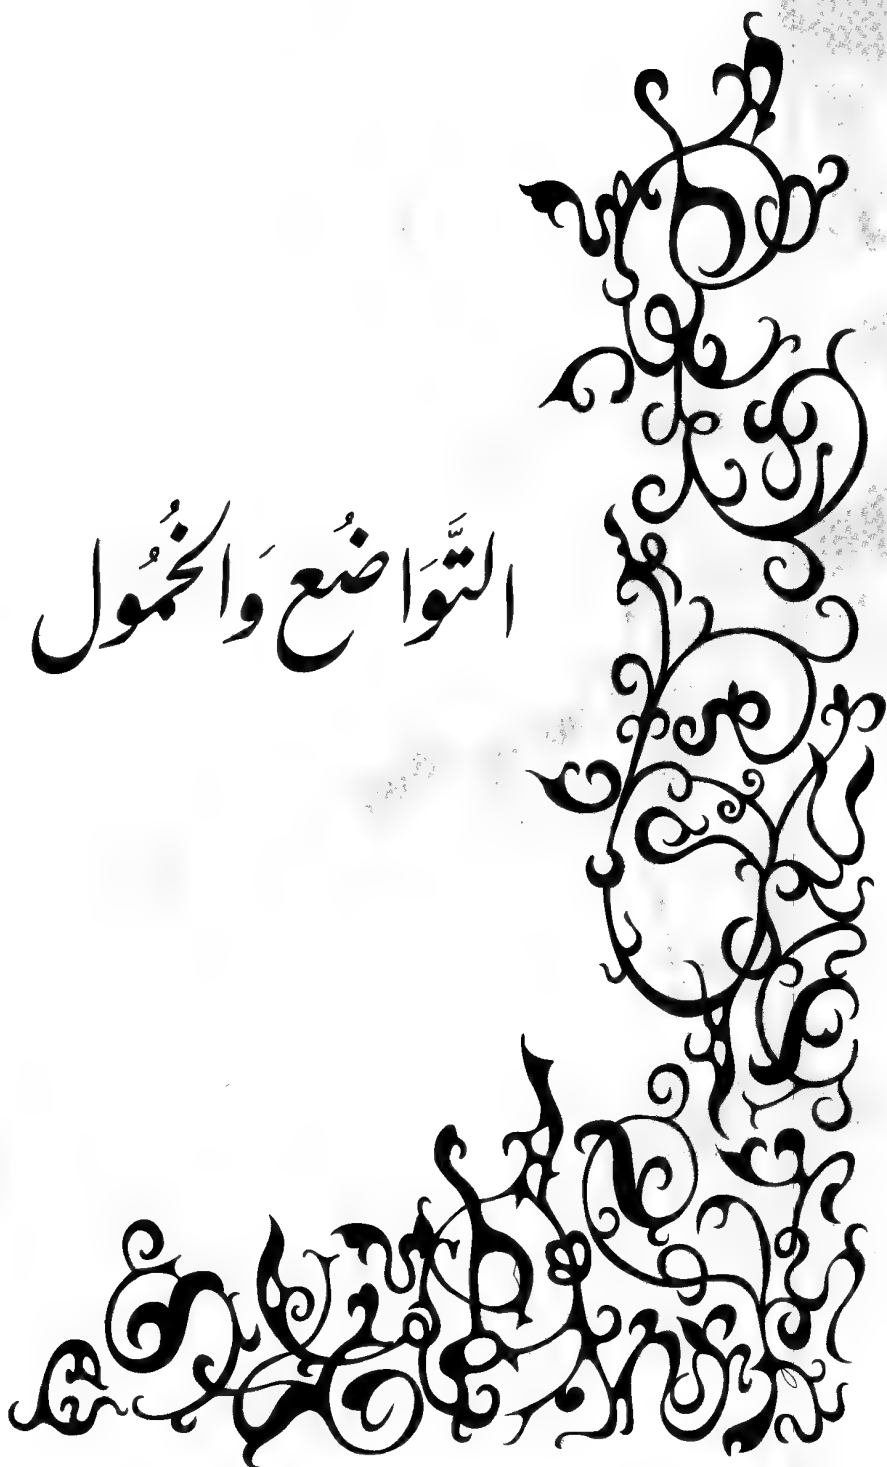 التَّوَاضُع وَالخُمُول